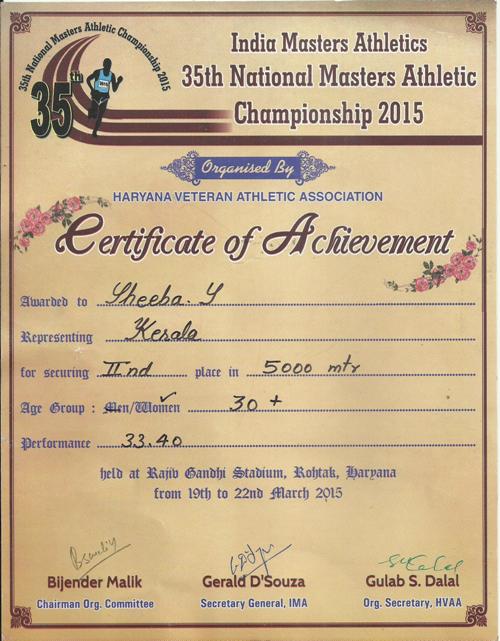 35th National Masters Athletic Championship 2015
35th
India Masters Athletics
35th National Masters Athletic
Championship 2015
Organised By
HARYANA VETERAN ATHLETIC ASSOCIATION
Certificate of Achievement
Awarded to Sheeba. Y
Representing Kerala
for securing IInd place in 5000 mtr
Age Group : Men/Women 30 +
Performance 33.40
held at Rajiv Gandhi Stadium, Rohtak, Haryana
from 19th to 22nd March 2015
Bijender Malik Gerald D'Souza Gulab S. Dalal
Chairman Org. Committee Secretary General, IMA Org. Secretary, HVAA